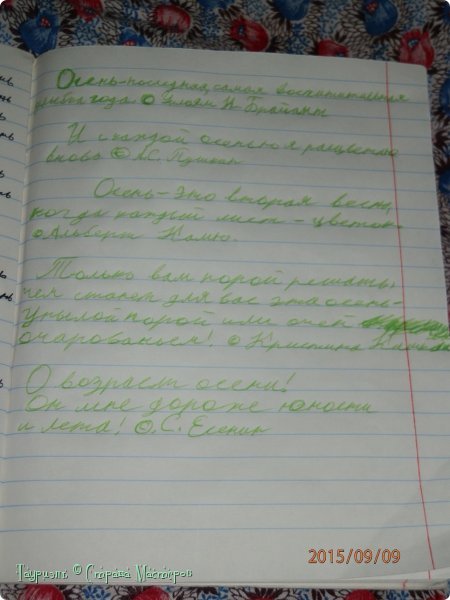 Осень-последняя, самая восхитительная
улыбка года © Уильям
И с каждой осенью я расцветаю
вновь © А.С. Пушкин
Осень-это вторая весна,
когда каждый лист - цветок.
© Альберт Камю.
Только вам порой решать,
чем станет для вас эта осень-
унылой порой или очей
очарованьем! © Кристина
О возраст осени!
Он мне дороже юности
и лета! ©.С. Есенин
2015/09/09
Тауриэль © Страна Мастеров